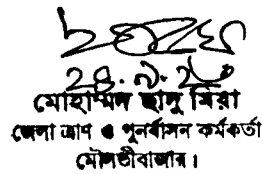 ২৪.৯.২৩
মোহাম্মদ ছাদু মিয়া
জেলা ত্রাণ ও পুনর্বাসন কর্মকর্তা
মৌলভীবাজার।